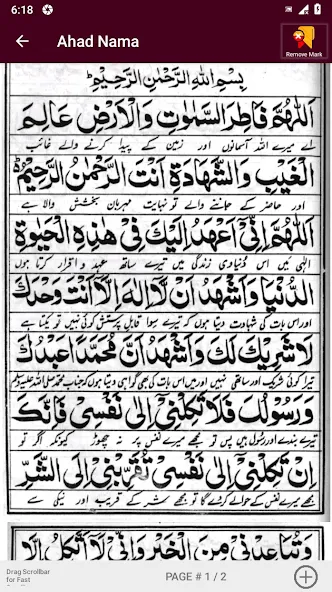 6:18
Ahad Nama
Remove Mark
بِسْمِ اللهِ الرَّحْمٰنِ الرَّحِيْمِ
اَللّٰهُمَّ فَاطِرَ السَّمٰوٰتِ وَالْاَرْضِ عَالِمَ
اے میرے اللہ آسمانوں اور زمین کے پیدا کرنے والے غائب
الْغَيْبِ وَالشَّهَادَةِ اَنْتَ الرَّحْمٰنُ الرَّحِيْمُ
اور حاضر کے جاننے والے تو نہایت مہربان بخشش والا ہے
اَللّٰهُمَّ اِنِّىْٓ اَعْهَدُ اِلَيْكَ فِىْ هٰذِهِ الْحَيٰوةِ
الٰہی میں اس دنیاوی زندگی میں تیرے ساتھ عہد و اقرار کرتا ہوں
الدُّنْيَا وَاَشْهَدُ اَنْ لَّآ اِلٰهَ اِلَّآ اَنْتَ وَحْدَكَ
اور اس بات کی شہادت دیتا ہوں کہ تیرے سوا قابل پرستش کوئی نہیں تو یکتا ہے
لَا شَرِيْكَ لَكَ وَاَشْهَدُ اَنَّ مُحَمَّدًا عَبْدُكَ
تیرا کوئی شریک اور ساتھی نہیں اور میں اس بات کی بھی گواہی دیتا ہوں کہ جناب محمد صلی اللہ علیہ وسلم
وَرَسُوْلُكَ فَلَا تَكِلْنِىْٓ اِلٰى نَفْسِىْ فَاِنَّكَ
تیرے بندے اور رسول ہیں پس تو مجھے میرے نفس پر نہ چھوڑ کیونکہ اگر تو
اِنْ تَكِلْنِىْٓ اِلٰى نَفْسِىْ تُقَرِّبْنِىْٓ اِلَى الشَّرِّ
مجھے میرے نفس کے حوالے کرے گا تو مجھے شر کے قریب اور نیکی سے
وَتُبَاعِدْنِىْ مِنَ الْخَيْرِ وَاِنِّىْ لَآ اَتَّكِلُ اِلَّا
Drag Scrollbar
for Fast
PAGE # 1 / 2